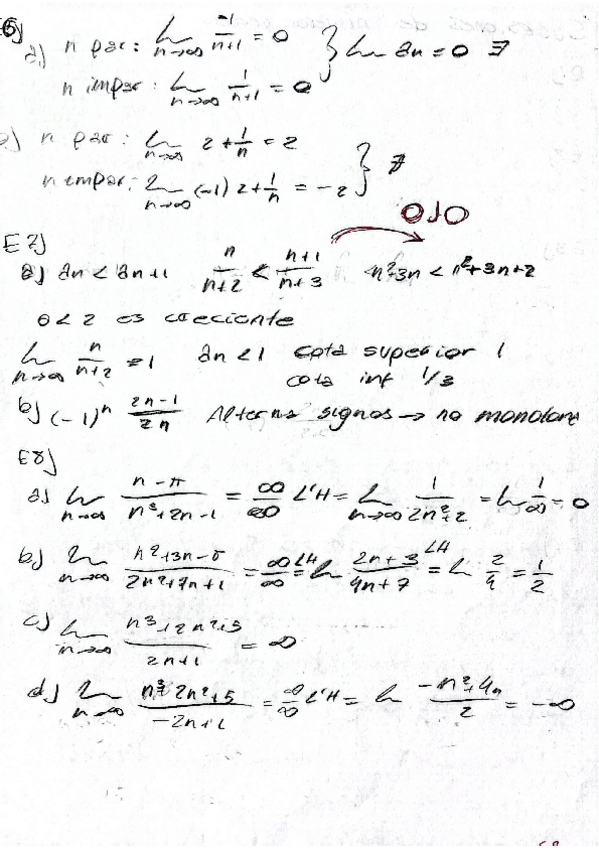 6)
a) n par: lim n→∞ -1/(n+1) = 0 } lim an = 0 ∃
n impar: lim n→∞ 1/(n+1) = 0
b) n par: lim n→∞ 2 + 1/n = 2
n impar: lim n→∞ (-1) 2 + 1/n = -2 } ∄
OJO
E7)
a) an < an+1 n/(n+2) < (n+1)/(n+3) n²3n < n²+3n+2
0 < 2 es creciente
lim n→∞ n/(n+2) = 1 an < 1 cota superior 1
cota inf 1/3
b) (-1)^n (2n-1)/(2n) Alterna signos → no monotona
E8)
a) lim n→∞ (n-π)/(n³+2n-1) = ∞/∞ L'H = lim n→∞ 1/(2n²+2) = lim 1/∞ = 0
b) lim n→∞ (n²+3n-5)/(2n²+7n+1) = ∞/∞ LH lim (2n+3)/(4n+7) LH = l 2/4 = 1/2
c) lim n→∞ (n³+2n²+5)/(2n+1) = ∞
d) lim n→∞ (n³ 2n²+5)/(-2n+1) = ∞/∞ L'H = l (-n²+4n)/2 = -∞